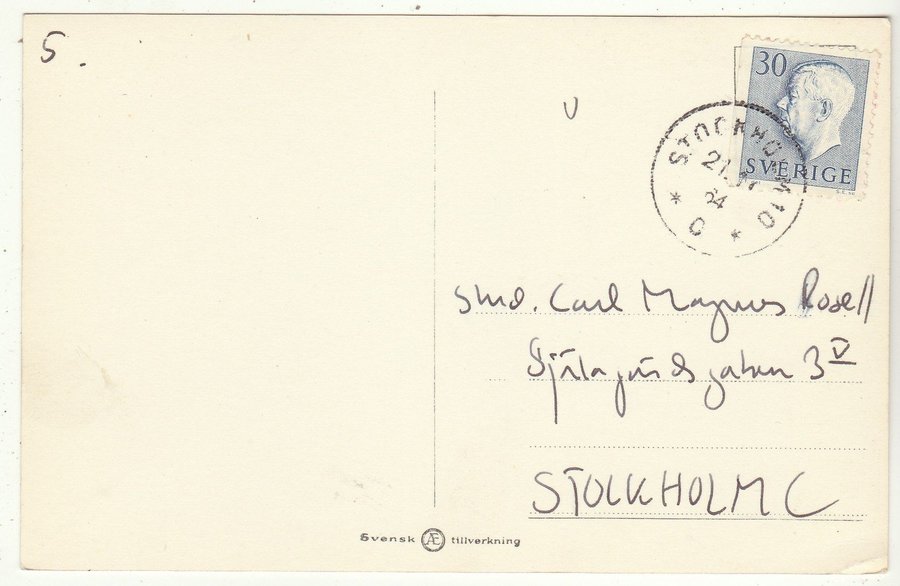 5.
30
SVERIGE
STOCKHOLM 10
21.
64
O
U
Stud. Carl Magnus Rosell
Själagårdsgatan 3 V
STOCKHOLM C
Svensk Æ tillverkning